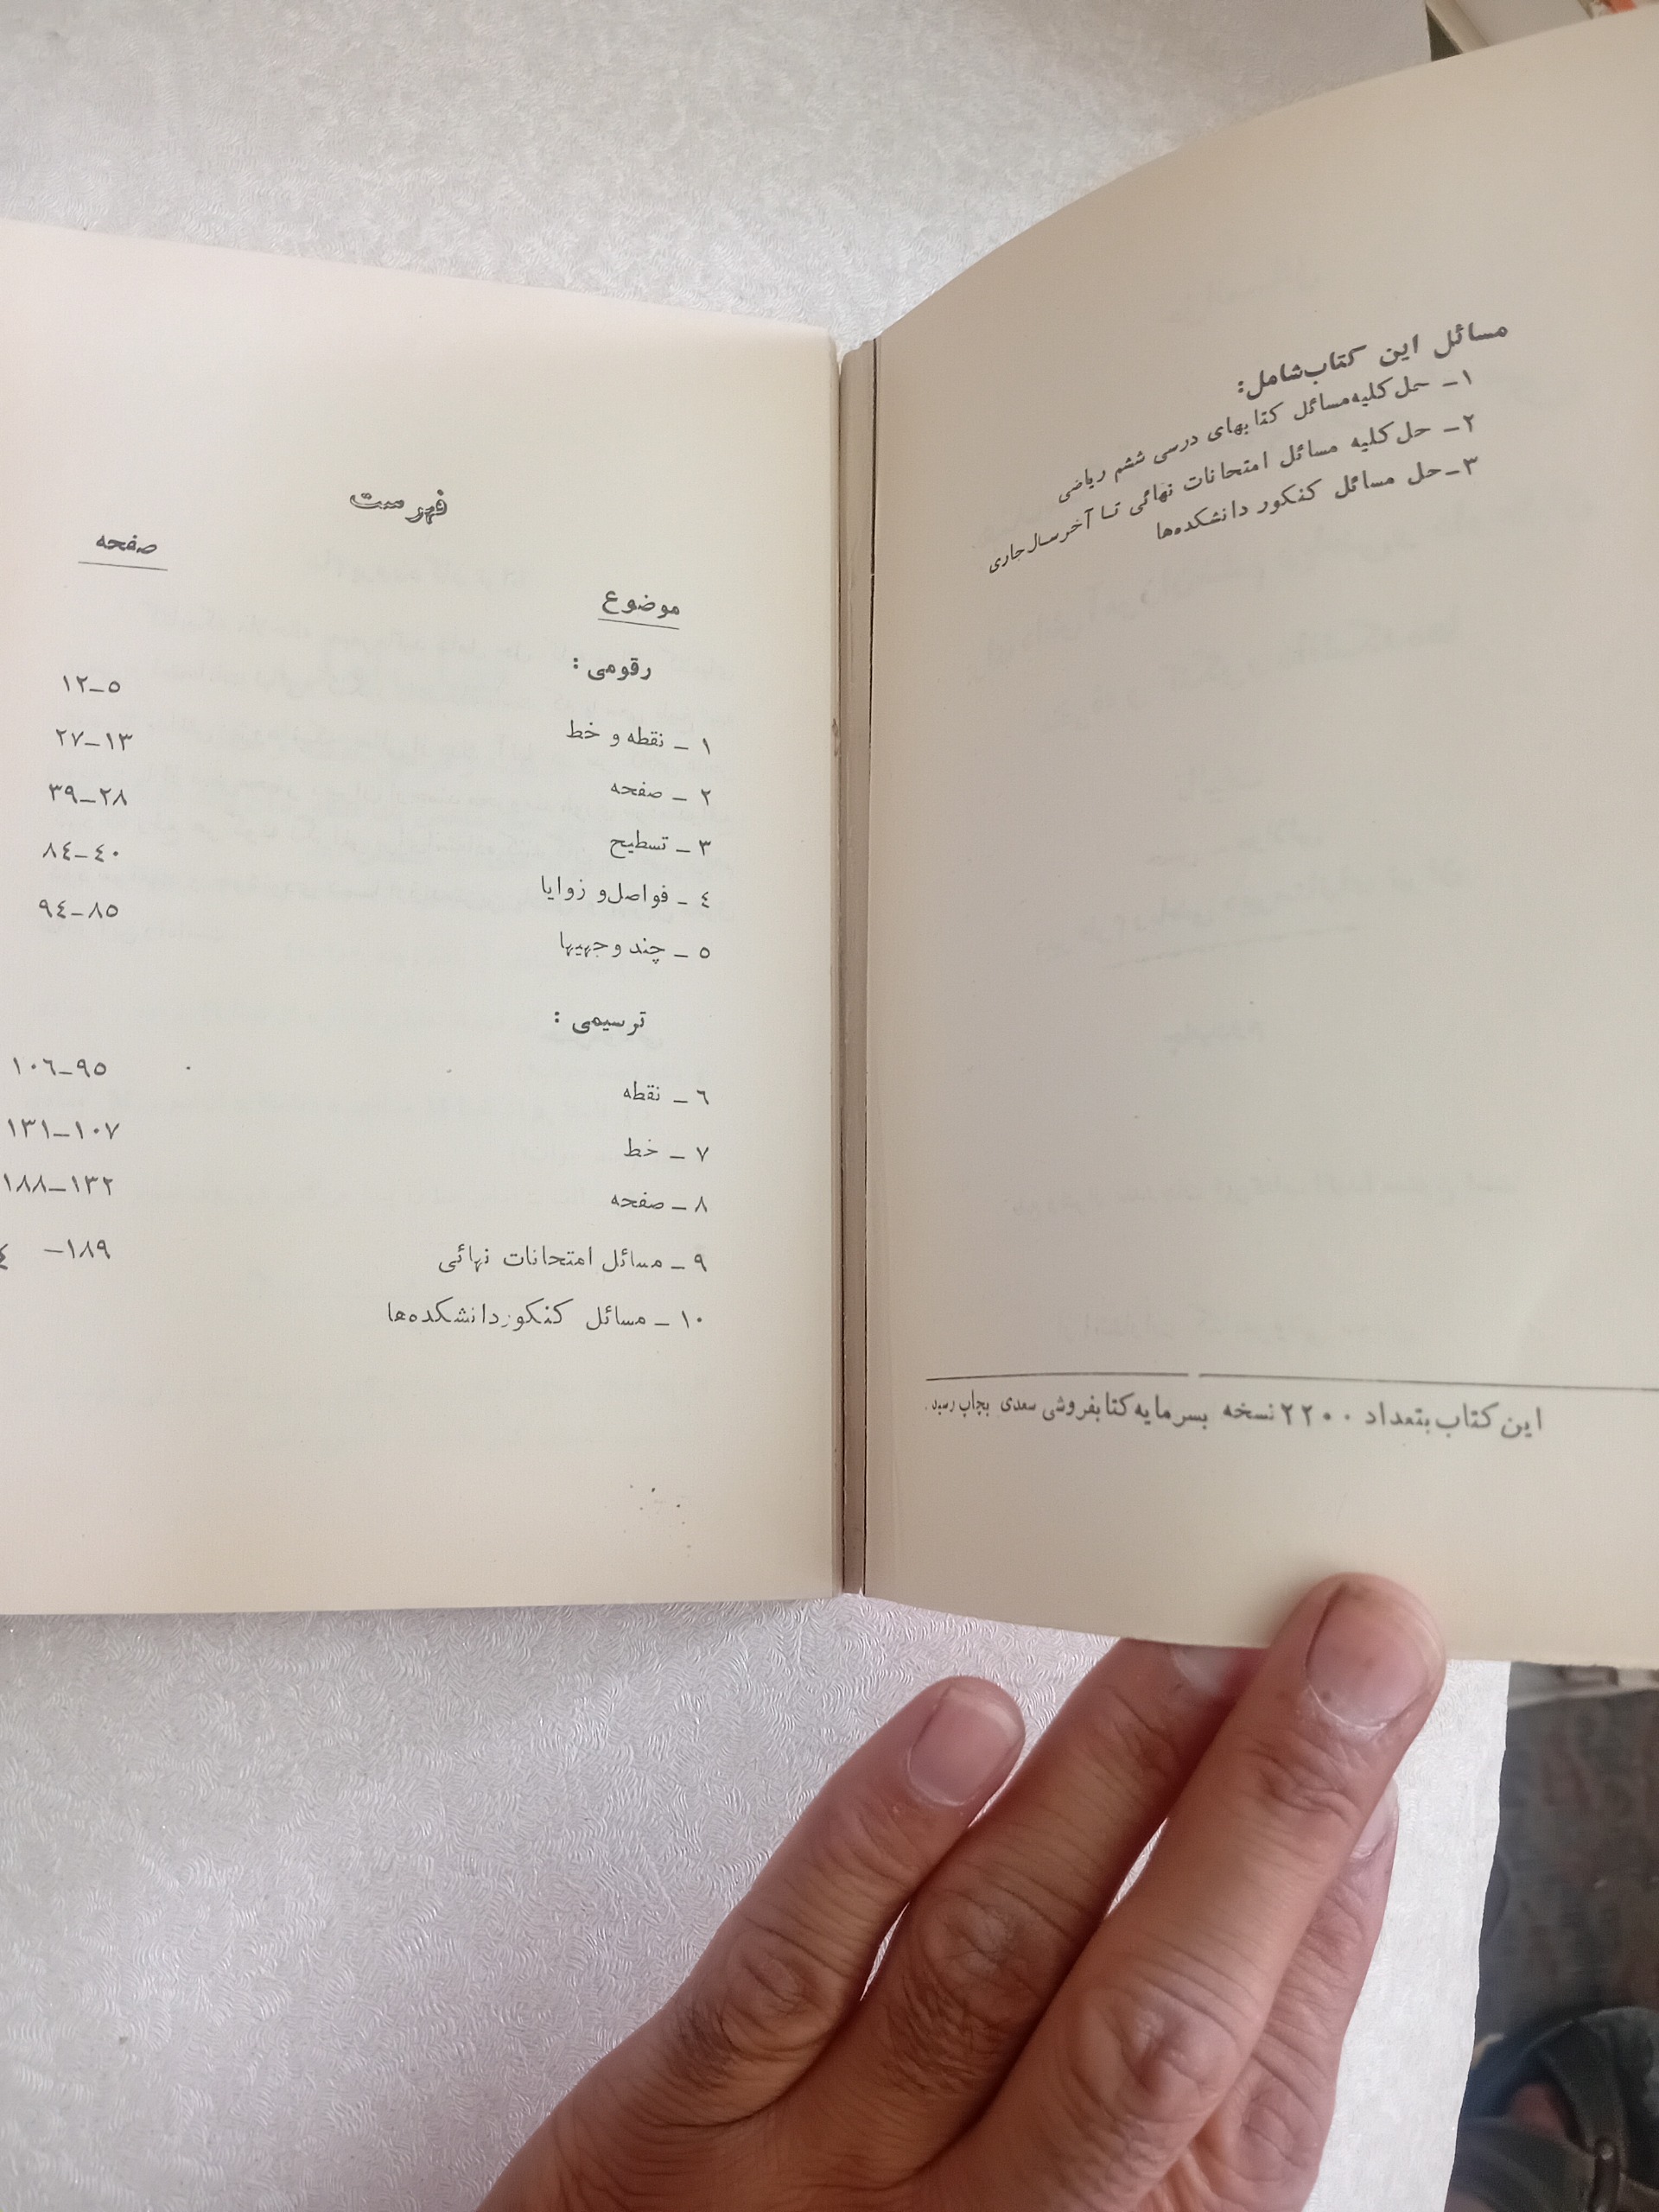 مسائل این کتاب شامل:
۱ـ حل کلیه مسائل کتابهای درسی ششم ریاضی
۲ـ حل کلیه مسائل امتحانات نهائی تا آخر سال جاری
۳ـ حل مسائل کنکور دانشکده‌ها
این کتاب بتعداد ۲۲۰۰ نسخه بسرمایه کتابفروشی سعدی بچاپ رسید.
فهرست
موضوع صفحه
رقومی :
۱ ـ نقطه و خط ۵ـ۱۲
۲ ـ صفحه ۱۳ـ۲۷
۳ ـ تسطیح ۲۸ـ۳۹
٤ ـ فواصل و زوایا ٤۰ـ۸٤
۵ ـ چند وجهیها ۸۵ـ۹٤
ترسیمی :
٦ ـ نقطه ۹۵ـ۱۰٦
۷ ـ خط ۱۰۷ـ۱۳۱
۸ ـ صفحه ۱۳۲ـ۱۸۸
۹ ـ مسائل امتحانات نهائی ۱۸۹ـ
۱۰ ـ مسائل کنکور دانشکده‌ها